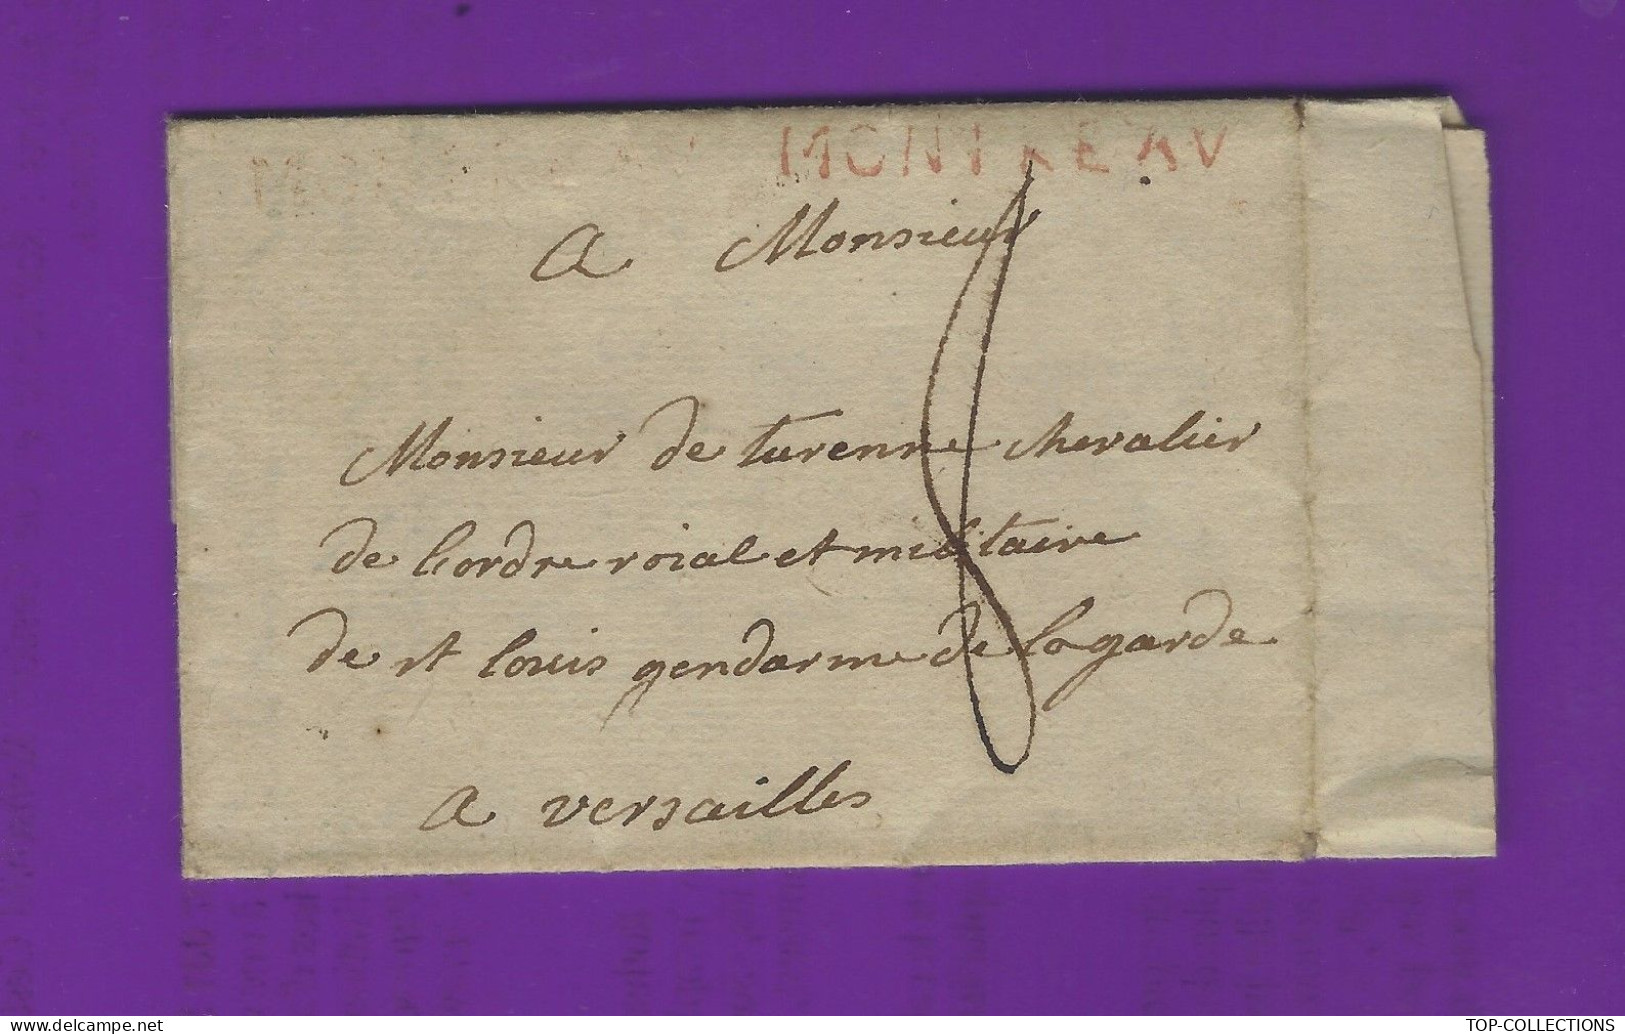 MONTREAV
a Monsieur
Monsieur de turenne chevalier
de lordre roial et militaire
de st louis gendarme de lagarde
a versailles
8
delcampe.net
TOP-COLLECTIONS